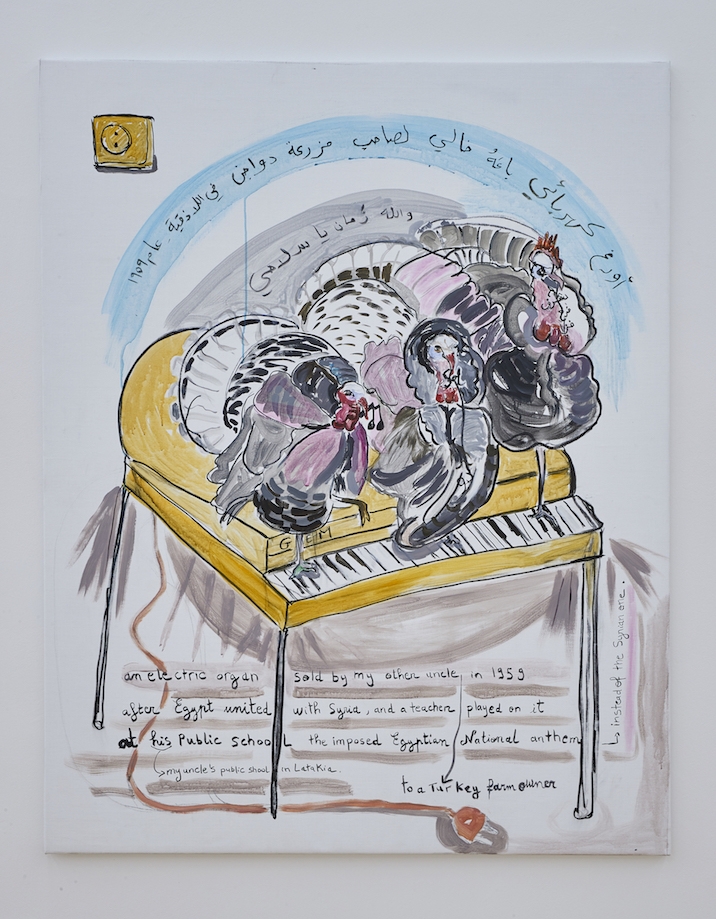 أورغ كهربائي باعهُ خالي لصاحب مزرعة دواجن في اللاذقية عام ١٩٥٩
والله زمان يا سلاحي
GEM
an electric organ sold by my other uncle in 1959
after Egypt united with Syria, and a teacher played on it
at his Public School the imposed Egyptian National anthem
↳ instead of the Syrian one.
my uncle's public shool in Latakia.
to a Turkey farm owner